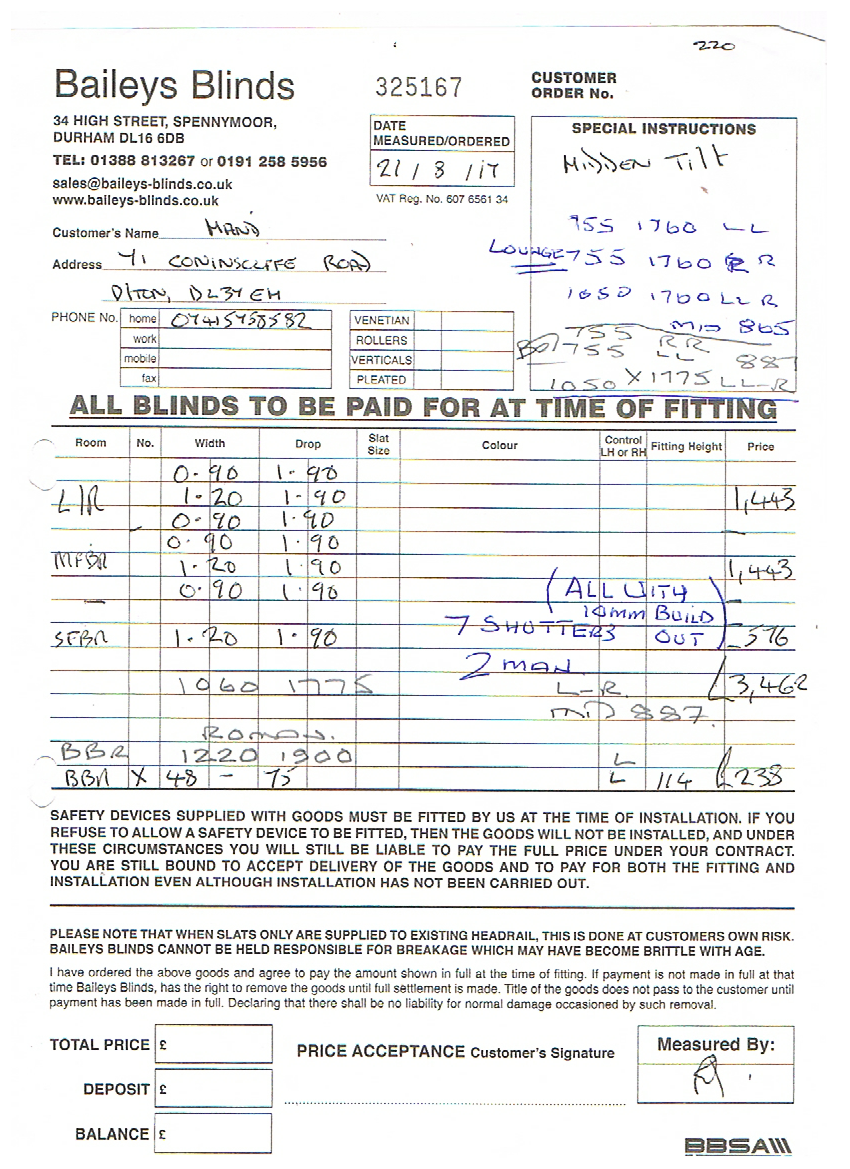 220
Baileys Blinds
325167
CUSTOMER
ORDER No.
34 HIGH STREET, SPENNYMOOR,
DURHAM DL16 6DB
TEL: 01388 813267 or 0191 258 5956
sales@baileys-blinds.co.uk
www.baileys-blinds.co.uk
DATE
MEASURED/ORDERED
21 / 3 / 17
VAT Reg. No. 607 6561 34
SPECIAL INSTRUCTIONS
HIDDEN TILT
755 1760 LL
LOUNGE 755 1760 R R
1050 1760 LL R
MID 865
755 RR
755 LL 887
1050 X 1775 LL-R
Customer's Name HAND
Address 41 CONINSCLIFFE ROAD
D/TON, DL3 7EH
PHONE No. home 07415758582
work
mobile
fax
VENETIAN
ROLLERS
VERTICALS
PLEATED
ALL BLINDS TO BE PAID FOR AT TIME OF FITTING
Room No. Width Drop Slat Size Colour Control LH or RH Fitting Height Price
0.90 1.90
L/R 1.20 1.90 1,443
0.90 1.90 –
0.90 1.90
MFBR 1.20 1.90 1,443
– 0.90 1.90 –
(ALL WITH
10mm BUILD
OUT)
7 SHUTTERS
SFBR 1.20 1.90 576
2 MAN
1060 1775 L-R £3,462
MID 887
ROMAN.
BBR 1220 1900 L
BBR X 48 – 75 L 114 £238
SAFETY DEVICES SUPPLIED WITH GOODS MUST BE FITTED BY US AT THE TIME OF INSTALLATION. IF YOU
REFUSE TO ALLOW A SAFETY DEVICE TO BE FITTED, THEN THE GOODS WILL NOT BE INSTALLED, AND UNDER
THESE CIRCUMSTANCES YOU WILL STILL BE LIABLE TO PAY THE FULL PRICE UNDER YOUR CONTRACT.
YOU ARE STILL BOUND TO ACCEPT DELIVERY OF THE GOODS AND TO PAY FOR BOTH THE FITTING AND
INSTALLATION EVEN ALTHOUGH INSTALLATION HAS NOT BEEN CARRIED OUT.
PLEASE NOTE THAT WHEN SLATS ONLY ARE SUPPLIED TO EXISTING HEADRAIL, THIS IS DONE AT CUSTOMERS OWN RISK.
BAILEYS BLINDS CANNOT BE HELD RESPONSIBLE FOR BREAKAGE WHICH MAY HAVE BECOME BRITTLE WITH AGE.
I have ordered the above goods and agree to pay the amount shown in full at the time of fitting. If payment is not made in full at that
time Baileys Blinds, has the right to remove the goods until full settlement is made. Title of the goods does not pass to the customer until
payment has been made in full. Declaring that there shall be no liability for normal damage occasioned by such removal.
TOTAL PRICE £
DEPOSIT £
BALANCE £
PRICE ACCEPTANCE Customer's Signature
Measured By:
BBSA